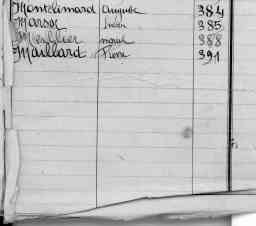 Montelimard Auguste 384
Marsac 385
388
Maillard Pierre 391